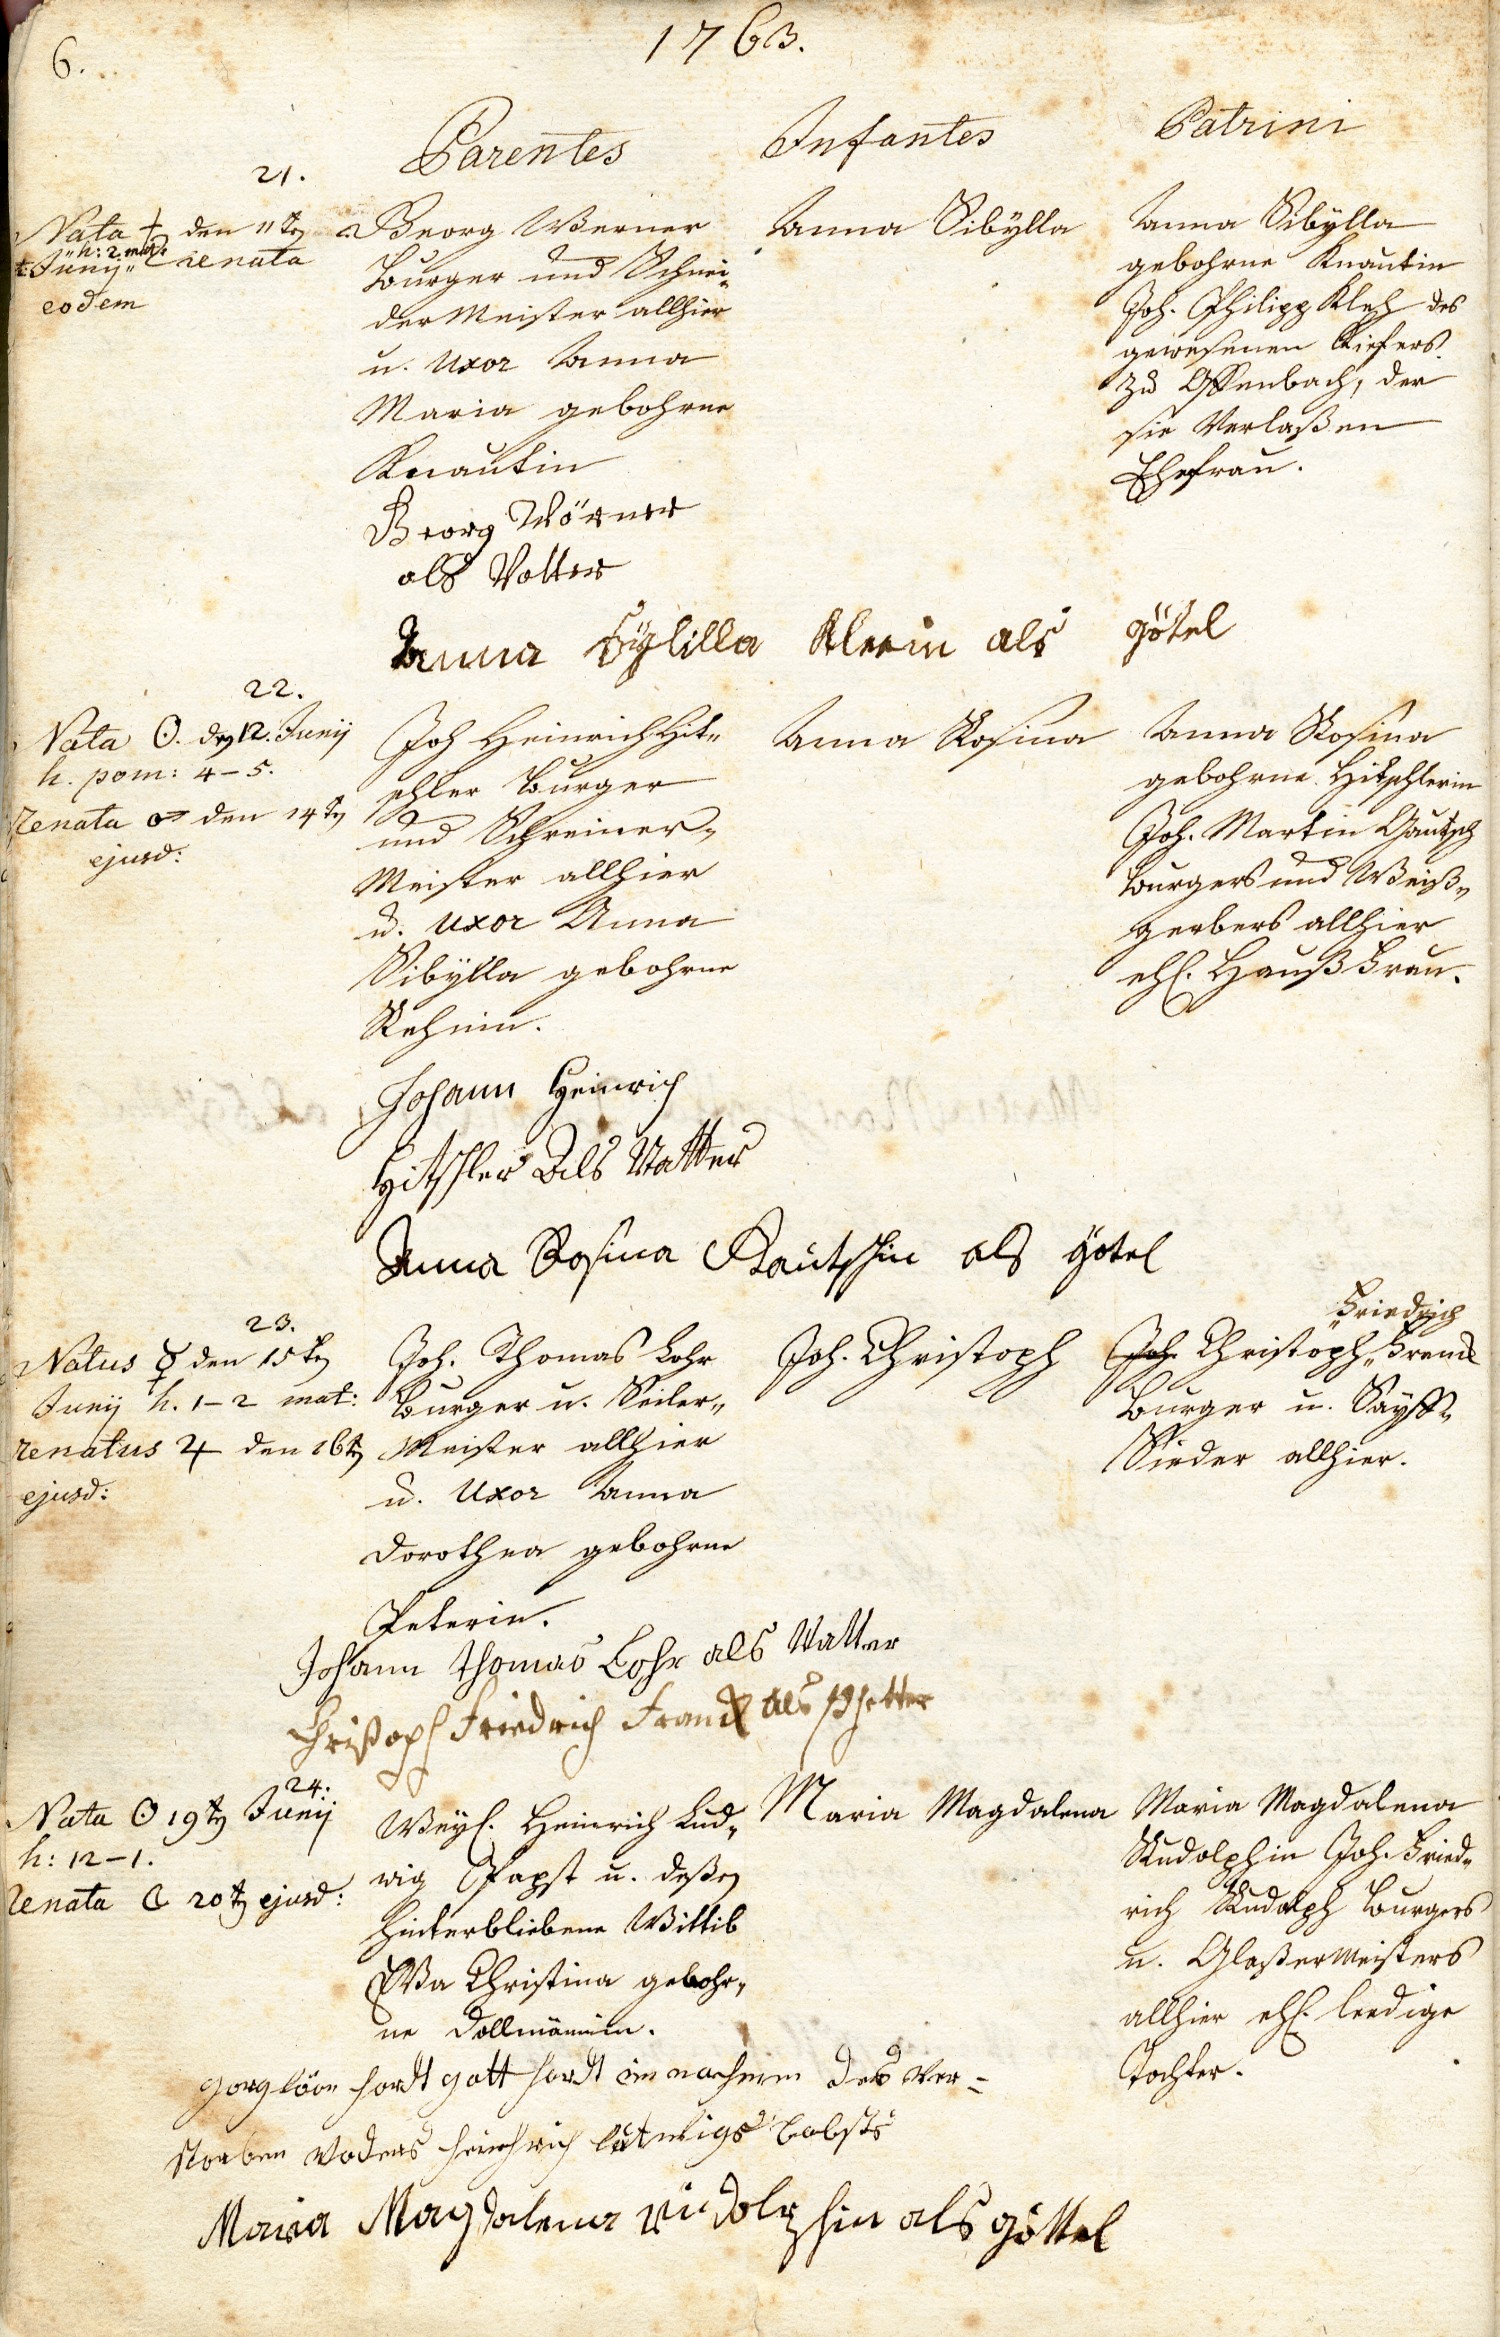 6.
1763.
Parentes Infantes Patrini
21.
Nata ♄ den 11t͠
h: 2. mat:
Junij renata
eodem
Georg Werner
Burger und Schnei-
der Meister allhier
u. Uxor Anna
Maria gebohrne
Knautin
Anna Sibÿlla
Anna Sibÿlla
gebohrne Knautin
Joh. Philipp Kleh des
gewesenen Kiefers
zu Offenbach, der
sie Verlaßen
Ehefrau.
Georg Wörner
als Vatter
Anna als götel
22.
Nata ☉. den 12. Junij
h. pom: 4-5.
renata ♂ den 14t͠
ejusd:
Joh Heinrich Hit-
schler Burger
und Schreiner-
Meister allhier
u. Uxor Anna
Sibÿlla gebohrne
Rehmin.
Anna Rosina
Anna Rosina
gebohrne Hitschlerin
Joh. Martin Gautsch
Burgers und Weiß-
gerbers allhier
ehl. Hauß Frau.
Johann Heinrich
Hitschler Als Vatter
Anna Rosina Kautschin als götel
23.
Natus ☿ den 15t͠
Junij h. 1-2 mat:
renatus ♃ den 16t͠
ejusd:
Joh. Thomas Lohr
Burger u. Seiler-
Meister allhier
u. Uxor Anna
Dorothea gebohrne
Peterin.
Joh. Christoph
Friedrich
Joh. Christoph Franck
Burger u. Sayff-
Sieder allhier.
Johann Thomas Lohr als Vatter
Christoph Friedrich Franck als Pfetter
24.
Nata ☉ 19t͠ Junij
h: 12-1.
renata ☾ 20t͠ ejusd:
Weyl. Heinrich Lud-
wig Papst u. deßen
hinterbliebene Wittib
Eva Christina gebohr-
ne Dollmännin.
Maria Magdalena
Maria Magdalena
Rudolphin Joh. Fried-
rich Rudolph Burgers
u. Glaßermeisters
allhier ehl. leedige
Tochter.
gorg hardt gott hardt im nachmen Des Ver-
storben Vaders heinrich lutwigs babsts
Maria Magdalena rudolphin als göttel